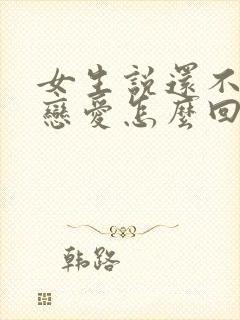 女生説還不
戀愛怎麼回
韩路